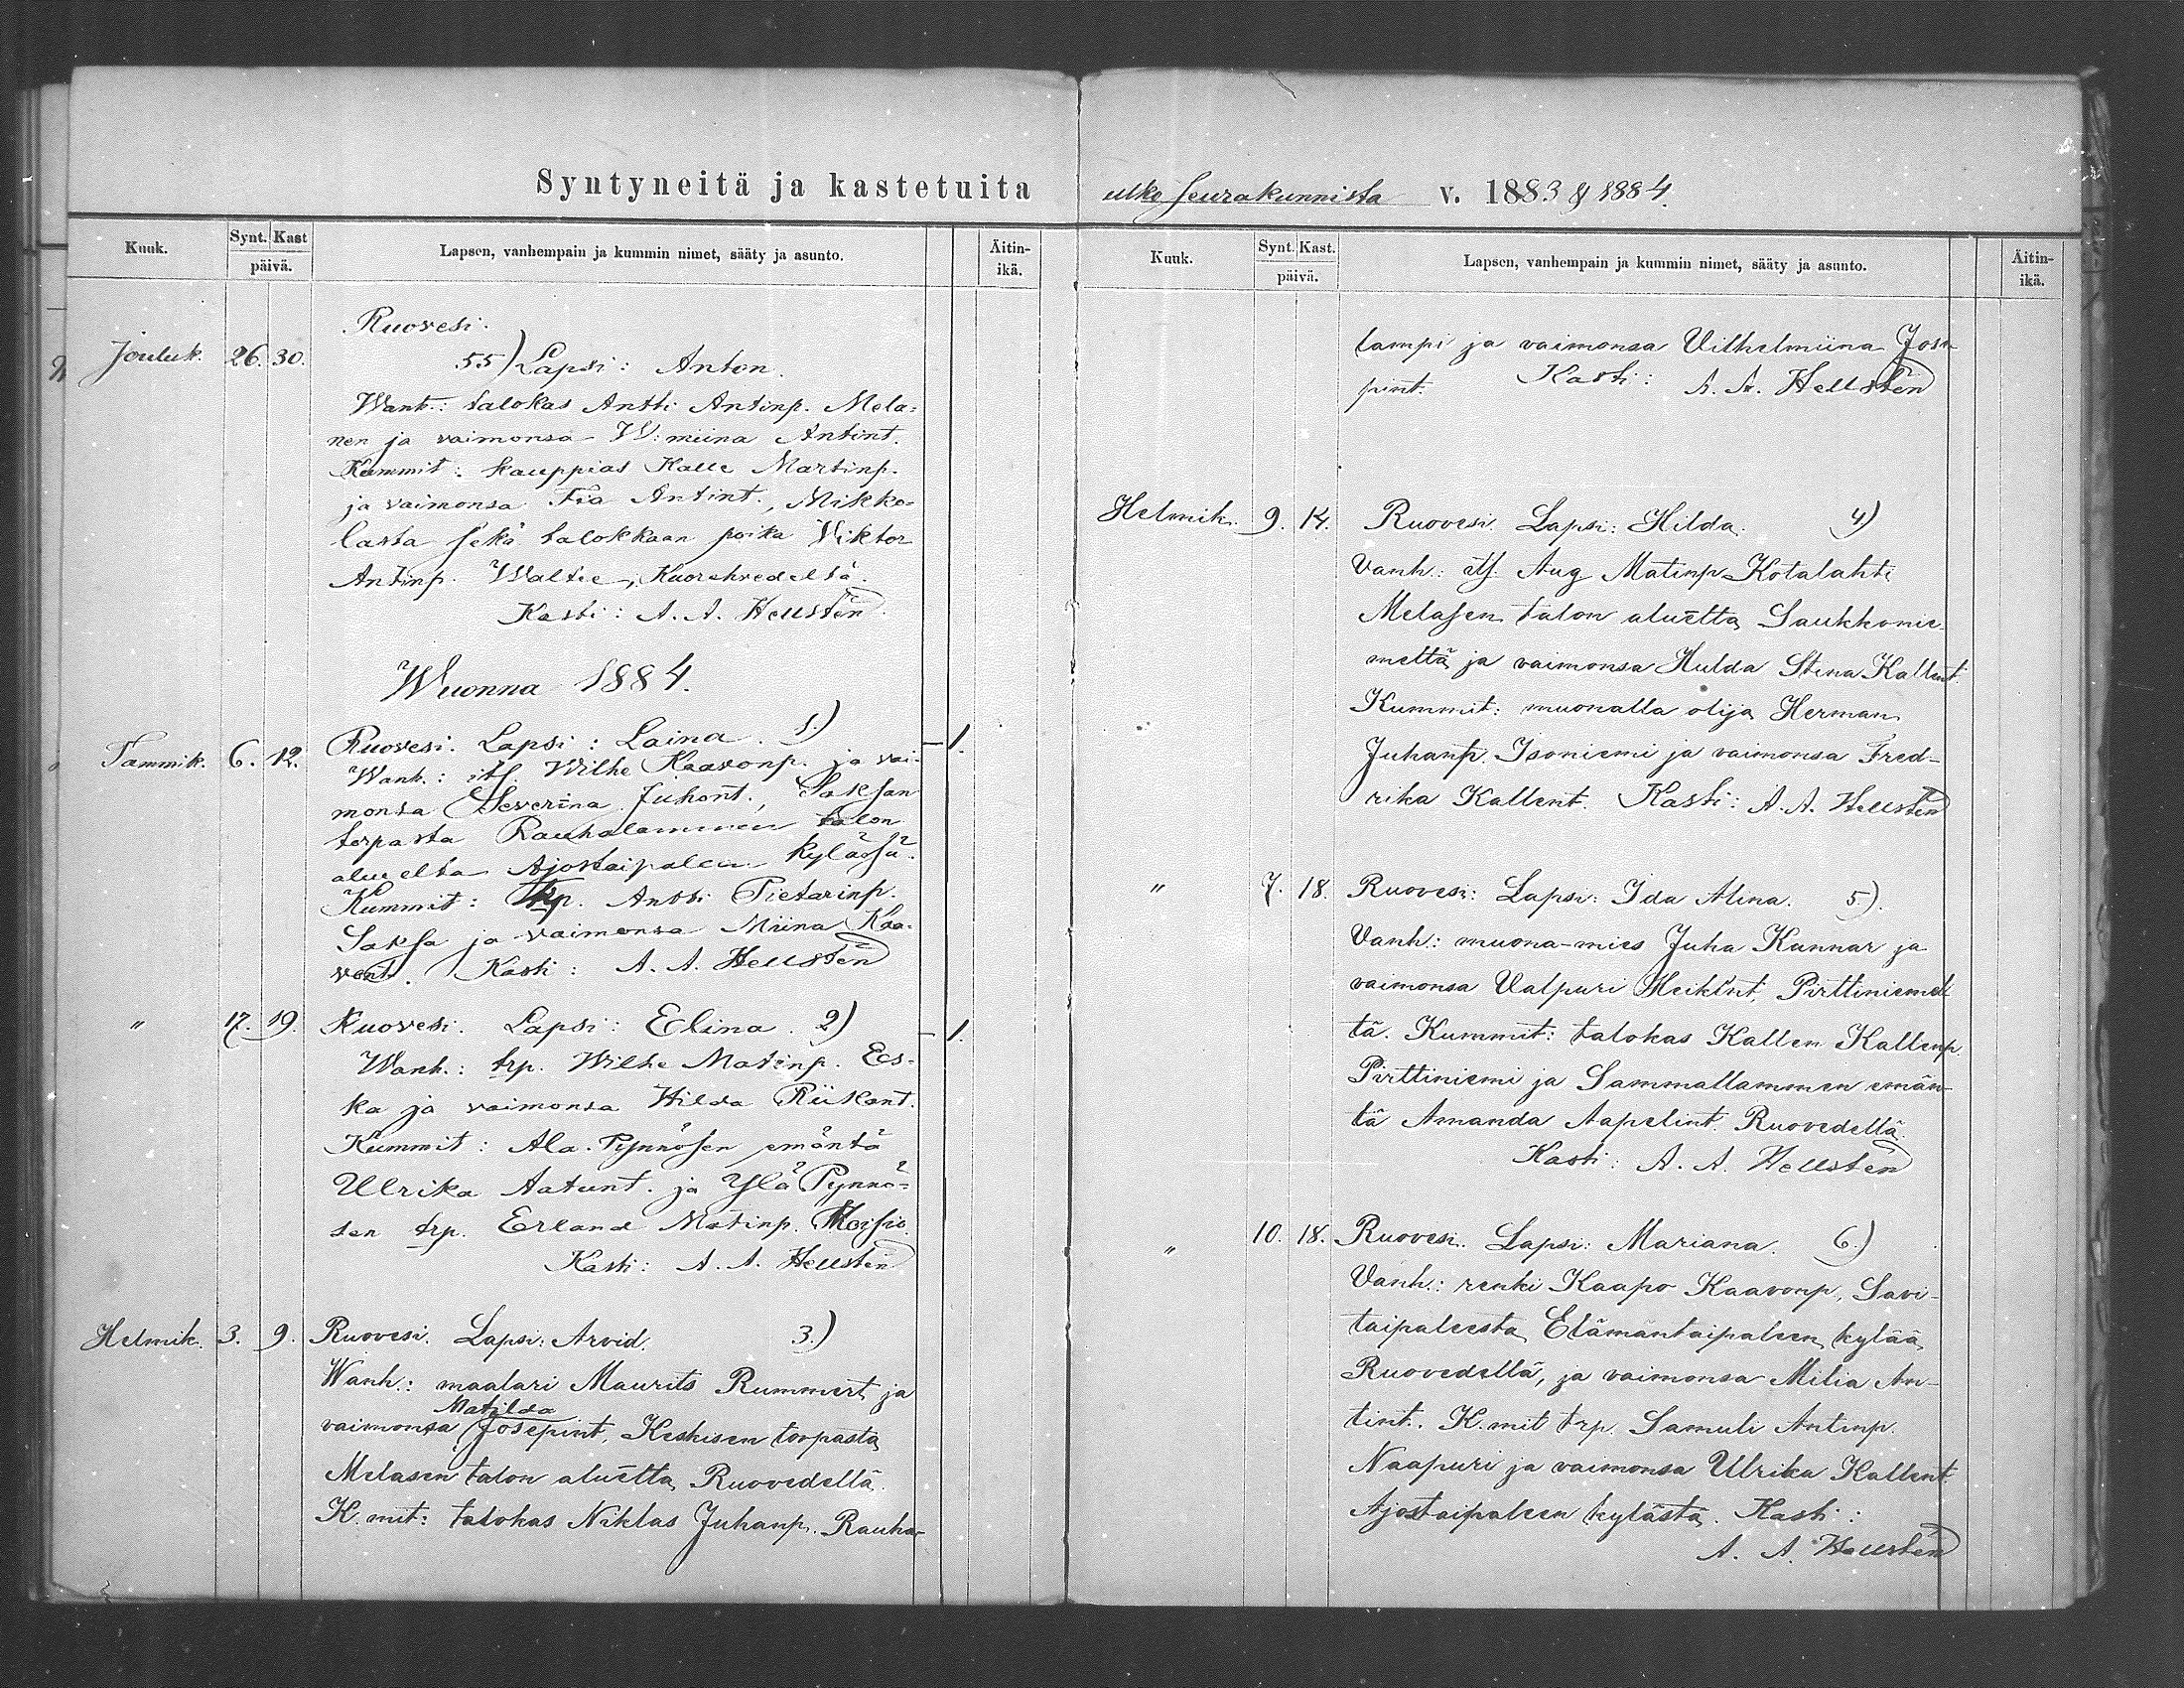 Syntyneitä ja kastetuita
Kuuk. Synt. Kast päivä. Lapsen, vanhempain ja kummin nimet, sääty ja asunto. Äitin-ikä.
Ruovesi.
Jouluk. 26. 30. 55) Lapsi: Anton.
Wanh.: talokas Antti Antinp. Mela-
nen ja vaimonsa W:miina Antint.
Kummit: kauppias Kalle Martinp.
ja vaimonsa Fia Antint., Mikko-
lasta sekä talokkaan poika Viktor
Antinp. Waltie, Kuorehvedeltä.
Kasti: A. A. Hellstén
Wuonna 1884.
Tammik. 6. 12. Ruovesi. Lapsi: Laina. 1.) 1.
Wanh.: its. Wilhe Kaavonp. ja vai-
monsa Severina Juhont., Saksan
torpasta Rauhalammen talon
aluelta Ajostaipaleen kylässä.
Kummit: Trp. Antti Pietarinp.
Saksa ja vaimonsa Miina Kaa-
vont. Kasti: A. A. Hellstén
" 17. 19. Ruovesi. Lapsi: Elina. 2) 1.
Wanh.: trp. Wilhe Matinp. Es-
ka ja vaimonsa Hilda Riikont.
Kummit: Ala-Pynnösen emäntä
Ulrika Aatunt. ja Ylä Pynnö-
sen trp. Erland Matinp. Moisio.
Kasti: A. A. Hellstén
Helmik. 3. 9. Ruovesi. Lapsi: Arvid. 3.)
Wanh.: maalari Maurits Rummert ja
Matilda
vaimonsa Josepint, Keskisen torpasta
Melasen talon aluelta Ruovedellä.
K.mit: talokas Niklas Juhanp. Rauha-
ulko seurakunnista v. 1883 & 1884.
Kuuk. Synt. Kast. päivä. Lapsen, vanhempain ja kummin nimet, sääty ja asunto. Äitin-ikä.
lampi ja vaimonsa Vilhelmiina Jose-
pint. Kasti: A. A. Hellstén
Helmik. 9. 14. Ruovesi. Lapsi: Hilda. 4)
Vanh.: its. Aug Matinp Kotalahti
Melasen talon aluelta Saukkonie-
meltä ja vaimonsa Hulda Stina Kallent.
Kummit: muonalla olija Herman
Juhanp. Isoniemi ja vaimonsa Fred-
rika Kallent. Kasti: A. A. Hellstén
" 7. 18. Ruovesi: Lapsi: Ida Alina. 5).
Vanh.: muona-mies Juha Kunnar ja
vaimonsa Valpuri Heikint. Pirttiniemel-
tä. Kummit: talokas Kallen Kallenp.
Pirttiniemi ja Sammallammen emän-
tä Amanda Aapelint. Ruovedellä.
Kasti: A. A. Hellstén
" 10. 18. Ruovesi. Lapsi: Mariana. 6.)
Vanh.: renki Kaapo Kaavonp, Savi-
taipaleesta Elämäntaipaleen kylää
Ruovedellä, ja vaimonsa Milia An-
tint. K.mit trp. Samuli Antinp.
Naapuri ja vaimonsa Ulrika Kallent.
Ajostaipaleen kylästä. Kasti:
A. A. Hellstén